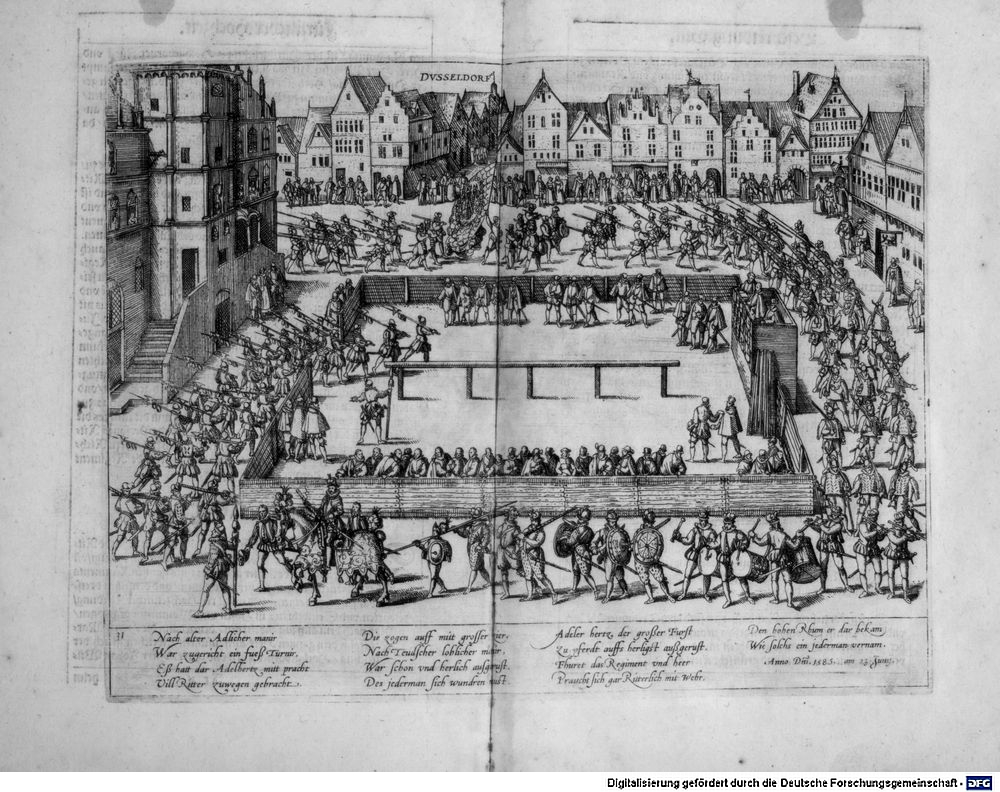 DVSSELDORF
31
Nach alter Adlicher manir
War zugericht ein fueß Turnir,
Eß hatt dar Adelhertz mitt pracht
Vill Ritter zuwegen gebracht.
Die zogen auff mit grosser zir,
Nach Teudscher loblicher manir,
War schon vnd herlich außgerust,
Des jederman sich wundren must.
Adeler hertz, der großer Furst
Zu pferdt auffs herligst außgerust.
Fhuret das Regiment vnd heer
Praucht sich gar Ritterlich mit Wehr.
Den hohen Rhum er dar bekam
Wie solchs ein jederman vernam.
Anno. Dnī. 1585. am 23 Junij.
Digitalisierung gefördert durch die Deutsche Forschungsgemeinschaft - DFG